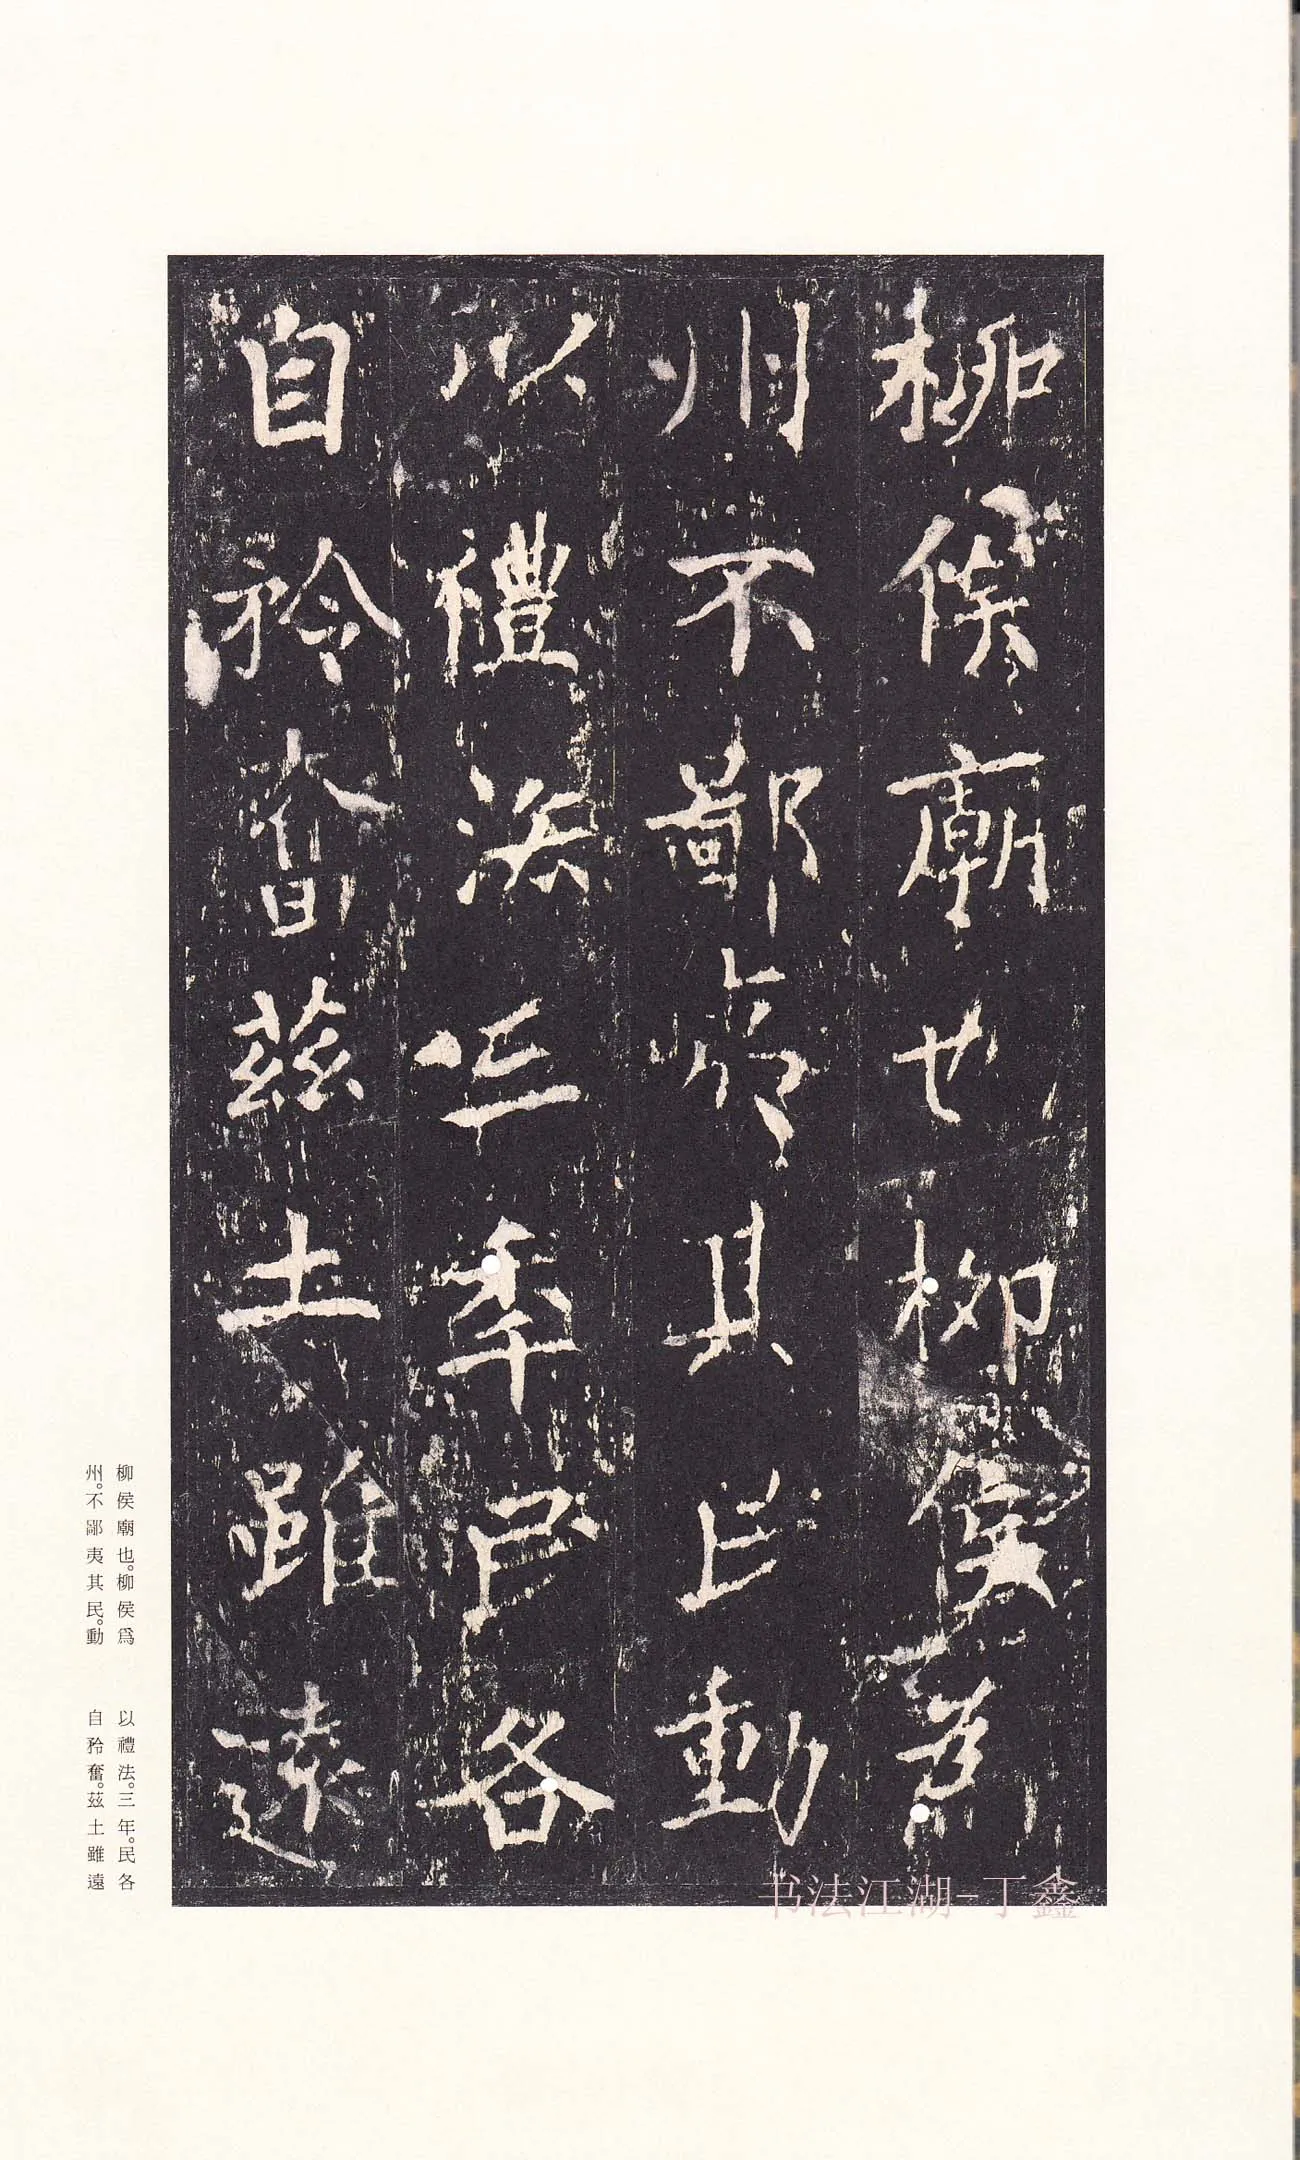 柳侯廟也柳侯爲
州不鄙夷其民動
以禮法三年民各
自矜奮茲土雖遠
柳侯廟也。柳侯爲
州。不鄙夷其民。動
以禮法。三年。民各
自矜奮。茲土雖遠
书法江湖-丁鑫